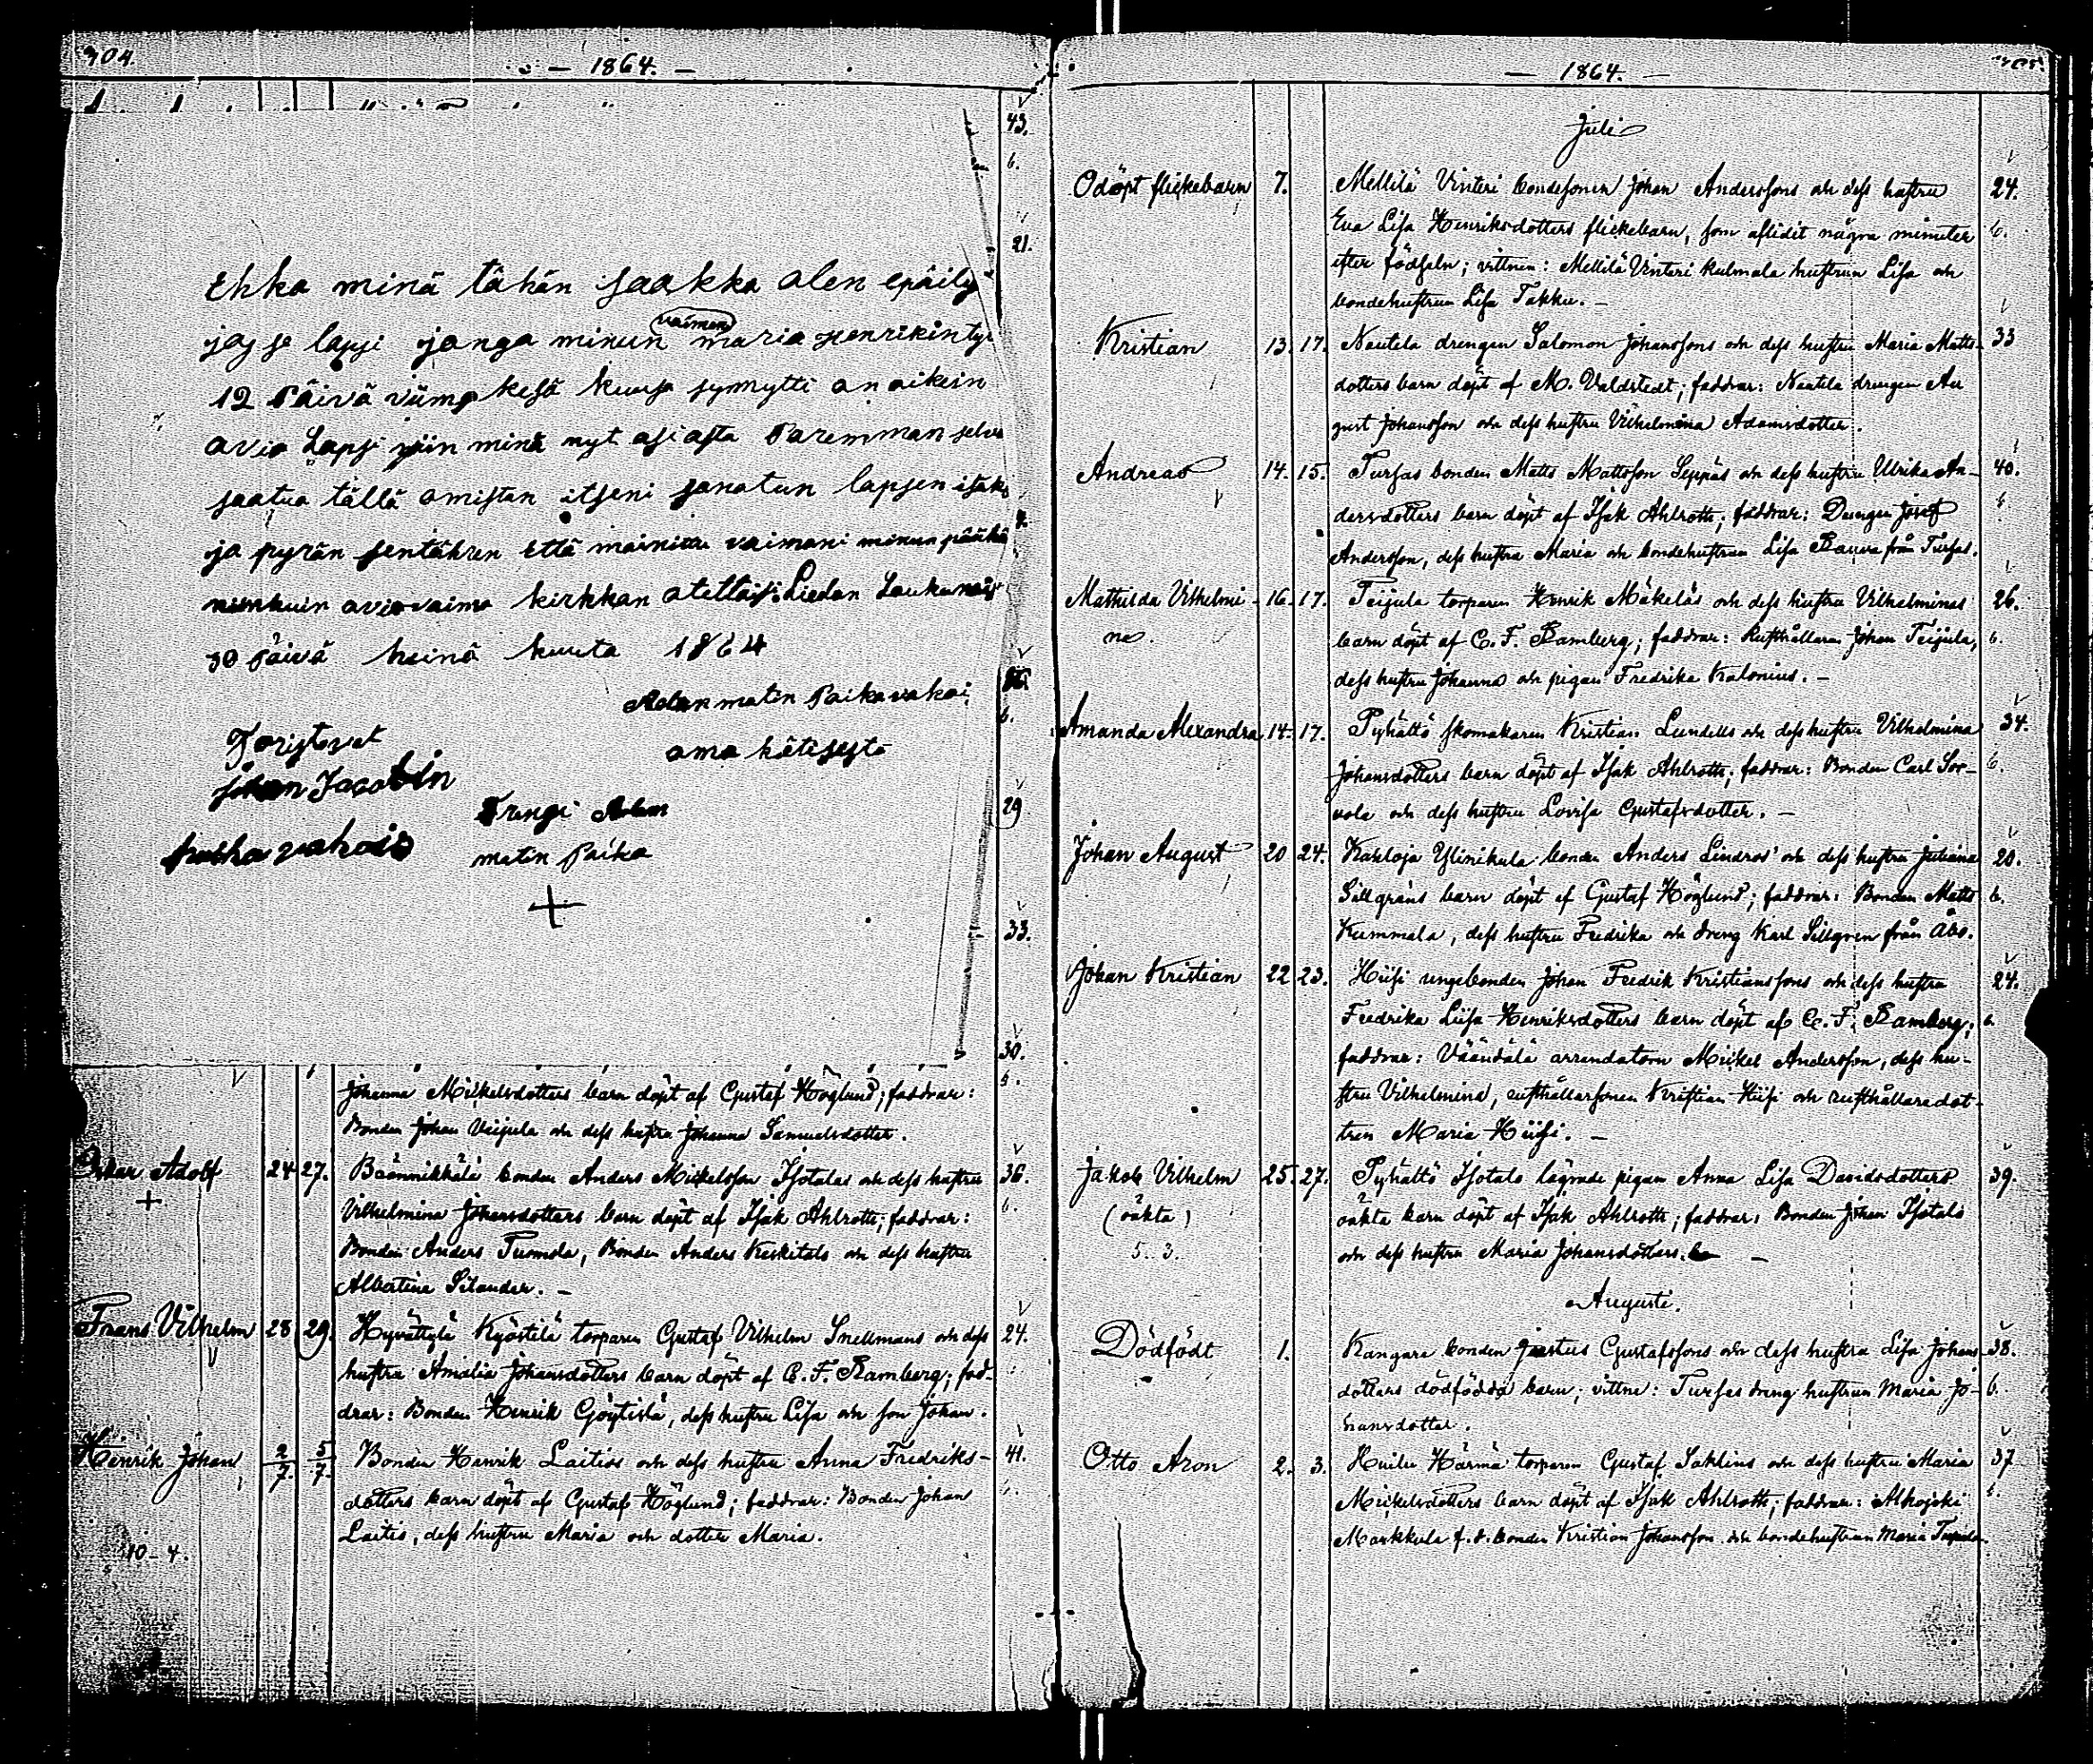 304.
— 1864. —
43.
6.
21.
Ehka minä tähän saakka olen epäily
jos se lapsi jonga minun vaimon maria Henrikintyt
12 Päivä viime kesä kuusa synnytti on oikein
avio Lapsi niin minä nyt asiasta Paremman selvä
saatua tällä omistan itseni sanotun lapsen isäks
ja pyrän sentähren että mainittu vaimoni minun pääl
niinkuin aviovaimo kirkkan otettaisi Liedon Loukunais
30 Päivä heinä kuuta 1864
Adam matin Paika vahai
oma kätisestä
Toristavat
johan Jacobin
Trengi Adam
matin Paika
+
29
33.
30.
6.
Johanna Mickelsdotters barn döpt af Gustaf Höglund; faddrar:
Bonden Johan Veijula och dess hustru Johanna Samuelsdotter.
Oskar Adolf 24 27. bonden Anders Mickelsson Isotalos och dess hustru 36.
+ Vilhelmina Johansdotters barn döpt af Isak Ahlroth; faddrar: 6.
Bonden Anders Tuomola, Bonden Anders Keskitalo och dess hustru
Albertina Silander. —
Frans Vilhelm 28 29. Hyvättylä Kyöstilä torparen Gustaf Vilhelm Snellmans och dess 24.
hustru Amalia Johansdotters barn döpt af C. F. Ramberg; fad-
drar: Bonden Henrik , dess hustru Lisa och son Johan.
Henrik Johan 2/7. 5/7. Bonden Henrik Laitios och dess hustru Anna Fredriks- 41.
dotters barn döpt af Gustaf Höglund; faddrar: Bonden Johan
Laitis, dess hustru Maria och dotter Maria.
10 - 4.
— 1864. —
305.
Juli
Odöpt flickebarn 7. Mellilä Vinteri bondesonen Johan Anderssons och dess hustru 24.
Eva Lisa Henriksdotters flickebarn, som aflidit några minuter 6.
efter födseln; vittnen: Mellilä Vinteri Kulmala hustrun Lisa och
bondehustrun Lisa Takku. —
Kristian 13. 17. Nautela drengen Salomon Johanssons och dess hustru Maria Matts- 33
dotters barn döpt af M. Valdstedt; faddrar: Nautela drengen Au
gust Johansson och dess hustru Vilhelmina Adamsdotter.
Andreas 14. 15. Tursas bonden Matts Mattsson Seppäs och dess hustru Ulrika An- 40.
dersdotters barn döpt af Isak Ahlroth; faddrar: Drengen Josef 6.
Andersson, dess hustru Maria och bondehustrun Lisa från Tursas.
Mathilda Vilhelmi- 16. 17. Teijula torparen Henrik Mäkeläs och dess hustru Vilhelminas 26.
na. barn döpt af C. F. Ramberg; faddrar: Rusthållaren Johan Teijula, 6.
dess hustru Johanna och pigan Fredrika Kalonius. —
Amanda Alexandra 14. 17. Pyhältö skomakaren Kristian Lundells och dess hustru Vilhelmina 34.
Johansdotters barn döpt af Isak Ahlroth; faddrar: Bonden Carl Sor- 6.
vola och dess hustru Lovisa Gustafsdotter. —
Johan August 20 24. Karhoja Ylinikula bonden Anders Lindros' och dess hustru Juliana 20.
Sillgräns barn döpt af Gustaf Höglund; faddrar: Bonden Matts 6.
Kummala, dess hustru Fredrika och dreng Karl Sillgren från Åbo.
Johan Kristian 22 23. Hiisi ungebonden Johan Fredrik Kristianssons och dess hustru 24.
Fredrika Liisa Henriksdotters barn döpt af C. F. Ramberg; 6.
faddrar: Väändälä arrendatorn Mickel Andersson, dess hu-
stru Vilhelmina, rusthållarsonen Kristian Hiisi och rusthållaredot-
tren Maria Hiisi. —
Jakob Vilhelm 25. 27. Pyhältö Isotalo lägrade pigan Anna Lisa Davidsdotters 39.
(oäkta) oäkta barn döpt af Isak Ahlroth; faddrar: Bonden Johan Isotalo
5. 3. och dess hustru Maria Johansdotters. —
Augusti.
Dödfödt 1. Kangare bonden Justus Gustafssons och dess hustru Lisa Johans- 38.
dotters dödfödda barn; vittne: Tursas dreng hustrun Maria Jo- 6.
hansdotter.
Otto Aron 2. 3. Huilu Härmä torparen Gustaf Saklins och dess hustru Maria 37
Mickelsdotters barn döpt af Isak Ahlroth; faddrar: Alhojoki 6.
Markkula f. d. bonden Kristian Johansson och bondehustrun Maria